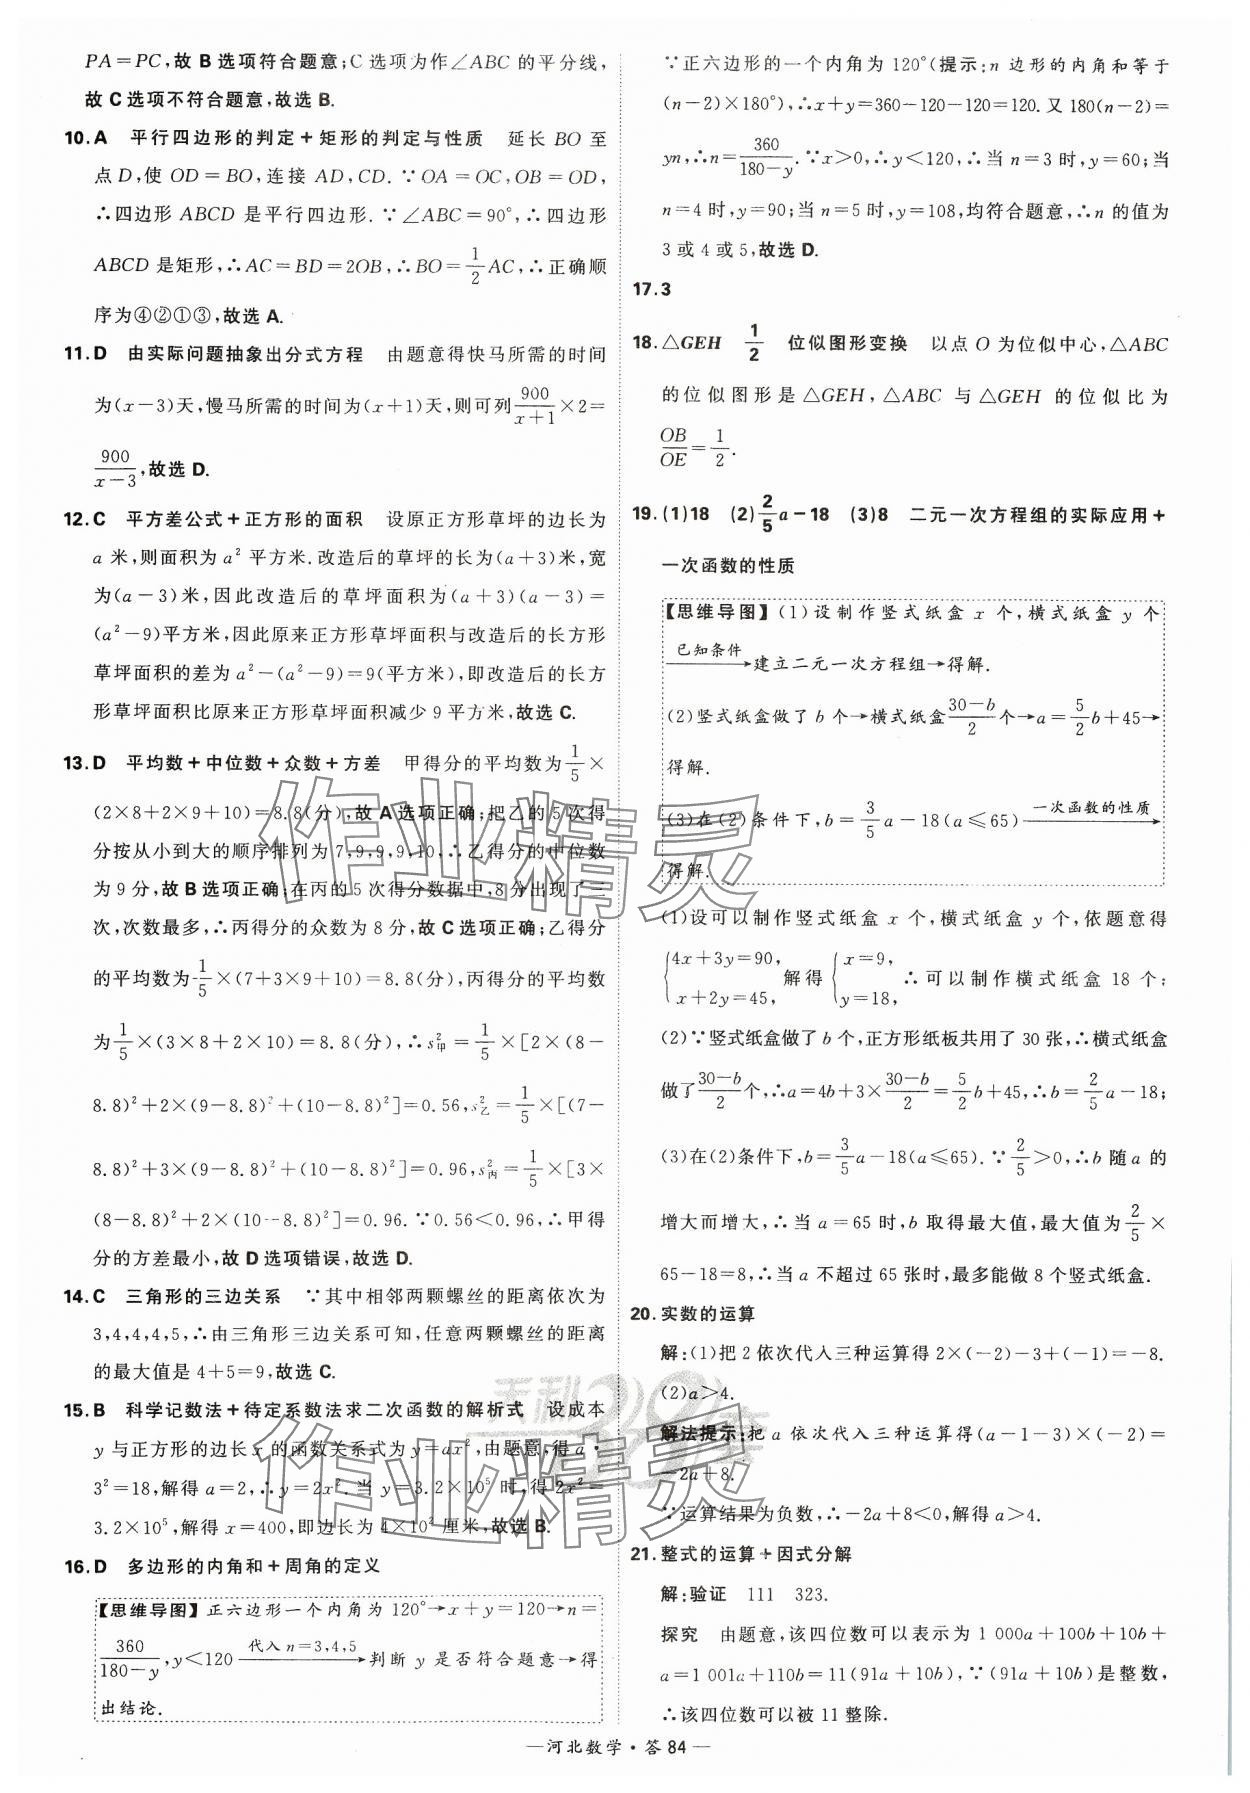 PA=PC,故 B 选项符合题意;C 选项为作∠ABC 的平分线,
故 C 选项不符合题意,故选 B.
10. A 平行四边形的判定+矩形的判定与性质 延长 BO 至
点 D,使 OD=BO,连接 AD,CD. ∵OA=OC,OB=OD,
∴四边形 ABCD 是平行四边形. ∵∠ABC=90°,∴四边形
ABCD 是矩形,∴AC=BD=2OB,∴BO=1/2 AC,∴正确顺
序为④②①③,故选 A.
11. D 由实际问题抽象出分式方程 由题意得快马所需的时间
为(x-3)天,慢马所需的时间为(x+1)天,则可列 900/(x+1)×2=
900/(x-3),故选 D.
12. C 平方差公式+正方形的面积 设原正方形草坪的边长为
a 米,则面积为 a² 平方米. 改造后的草坪的长为(a+3)米,宽
为(a-3)米,因此改造后的草坪面积为(a+3)(a-3)=
(a²-9)平方米,因此原来正方形草坪面积与改造后的长方形
草坪面积的差为 a²-(a²-9)=9(平方米),即改造后的长方
形草坪面积比原来正方形草坪面积减少 9 平方米,故选 C.
13. D 平均数+中位数+众数+方差 甲得分的平均数为 1/5×
(2×8+2×9+10)=8.8(分),故 A 选项正确;把乙的 5 次得
分按从小到大的顺序排列为 7,9,9,9,10,∴乙得分的中位数
为 9 分,故 B 选项正确;在丙的 5 次得分数据中,8 分出现了三
次,次数最多,∴丙得分的众数为 8 分,故 C 选项正确;乙得分
的平均数为 1/5×(7+3×9+10)=8.8(分),丙得分的平均数
为 1/5×(3×8+2×10)=8.8(分),∴s²甲=1/5×[2×(8-
8.8)²+2×(9-8.8)²+(10-8.8)²]=0.56,s²乙=1/5×[(7-
8.8)²+3×(9-8.8)²+(10-8.8)²]=0.96,s²丙=1/5×[3×
(8-8.8)²+2×(10-8.8)²]=0.96. ∵0.56<0.96,∴甲得
分的方差最小,故 D 选项错误,故选 D.
14. C 三角形的三边关系 ∵其中相邻两颗螺丝的距离依次为
3,4,4,4,5,∴由三角形三边关系可知,任意两颗螺丝的距离
的最大值是 4+5=9,故选 C.
15. B 科学记数法+待定系数法求二次函数的解析式 设成本
y 与正方形的边长 x 的函数关系式为 y=ax²,由题意,得 a·
3²=18,解得 a=2,∴y=2x². 当 y=3.2×10⁵ 时,得 2x²=
3.2×10⁵,解得 x=400,即边长为 4×10² 厘米,故选 B.
16. D 多边形的内角和+周角的定义
【思维导图】正六边形一个内角为 120°→x+y=120→n=
360/(180-y),y<120 代入 n=3,4,5→判断 y 是否符合题意→得
出结论.
∵正六边形的一个内角为 120°(提示:n 边形的内角和等于
(n-2)×180°),∴x+y=360-120-120=120. 又 180(n-2)=
yn,∴n=360/(180-y). ∵x>0,∴y<120,∴当 n=3 时,y=60;当
n=4 时,y=90;当 n=5 时,y=108,均符合题意,∴n 的值为
3 或 4 或 5,故选 D.
17. 3
18. △GEH 1/2 位似图形变换 以点 O 为位似中心,△ABC
的位似图形是△GEH,△ABC 与△GEH 的位似比为
OB/OE=1/2.
19. (1)18 (2)2/5 a-18 (3)8 二元一次方程组的实际应用+
一次函数的性质
【思维导图】(1)设制作竖式纸盒 x 个,横式纸盒 y 个
已知条件→建立二元一次方程组→得解.
(2)竖式纸盒做了 b 个→横式纸盒 (30-b)/2 个→a=5/2 b+45→
得解.
(3)在(2)条件下,b=3/5 a-18(a≤65) 一次函数的性质→
得解.
(1)设可以制作竖式纸盒 x 个,横式纸盒 y 个,依题意得
{4x+3y=90, x+2y=45, 解得 {x=9, y=18, ∴可以制作横式纸盒 18 个;
(2)∵竖式纸盒做了 b 个,正方形纸板共用了 30 张,∴横式纸盒
做了 (30-b)/2 个,∴a=4b+3×(30-b)/2=5/2 b+45,∴b=2/5 a-18;
(3)在(2)条件下,b=3/5 a-18(a≤65). ∵2/5>0,∴b 随 a 的
增大而增大,∴当 a=65 时,b 取得最大值,最大值为 2/5×
65-18=8,∴当 a 不超过 65 张时,最多能做 8 个竖式纸盒.
20. 实数的运算
解:(1)把 2 依次代入三种运算得 2×(-2)-3+(-1)=-8.
(2)a>4.
解法提示:把 a 依次代入三种运算得(a-1-3)×(-2)=
-2a+8.
∵运算结果为负数,∴-2a+8<0,解得 a>4.
21. 整式的运算+因式分解
解:验证 111 323.
探究 由题意,该四位数可以表示为 1 000a+100b+10b+
a=1 001a+110b=11(91a+10b),∵(91a+10b)是整数,
∴该四位数可以被 11 整除.
—河北数学·答 84—
作业精灵
作业精灵